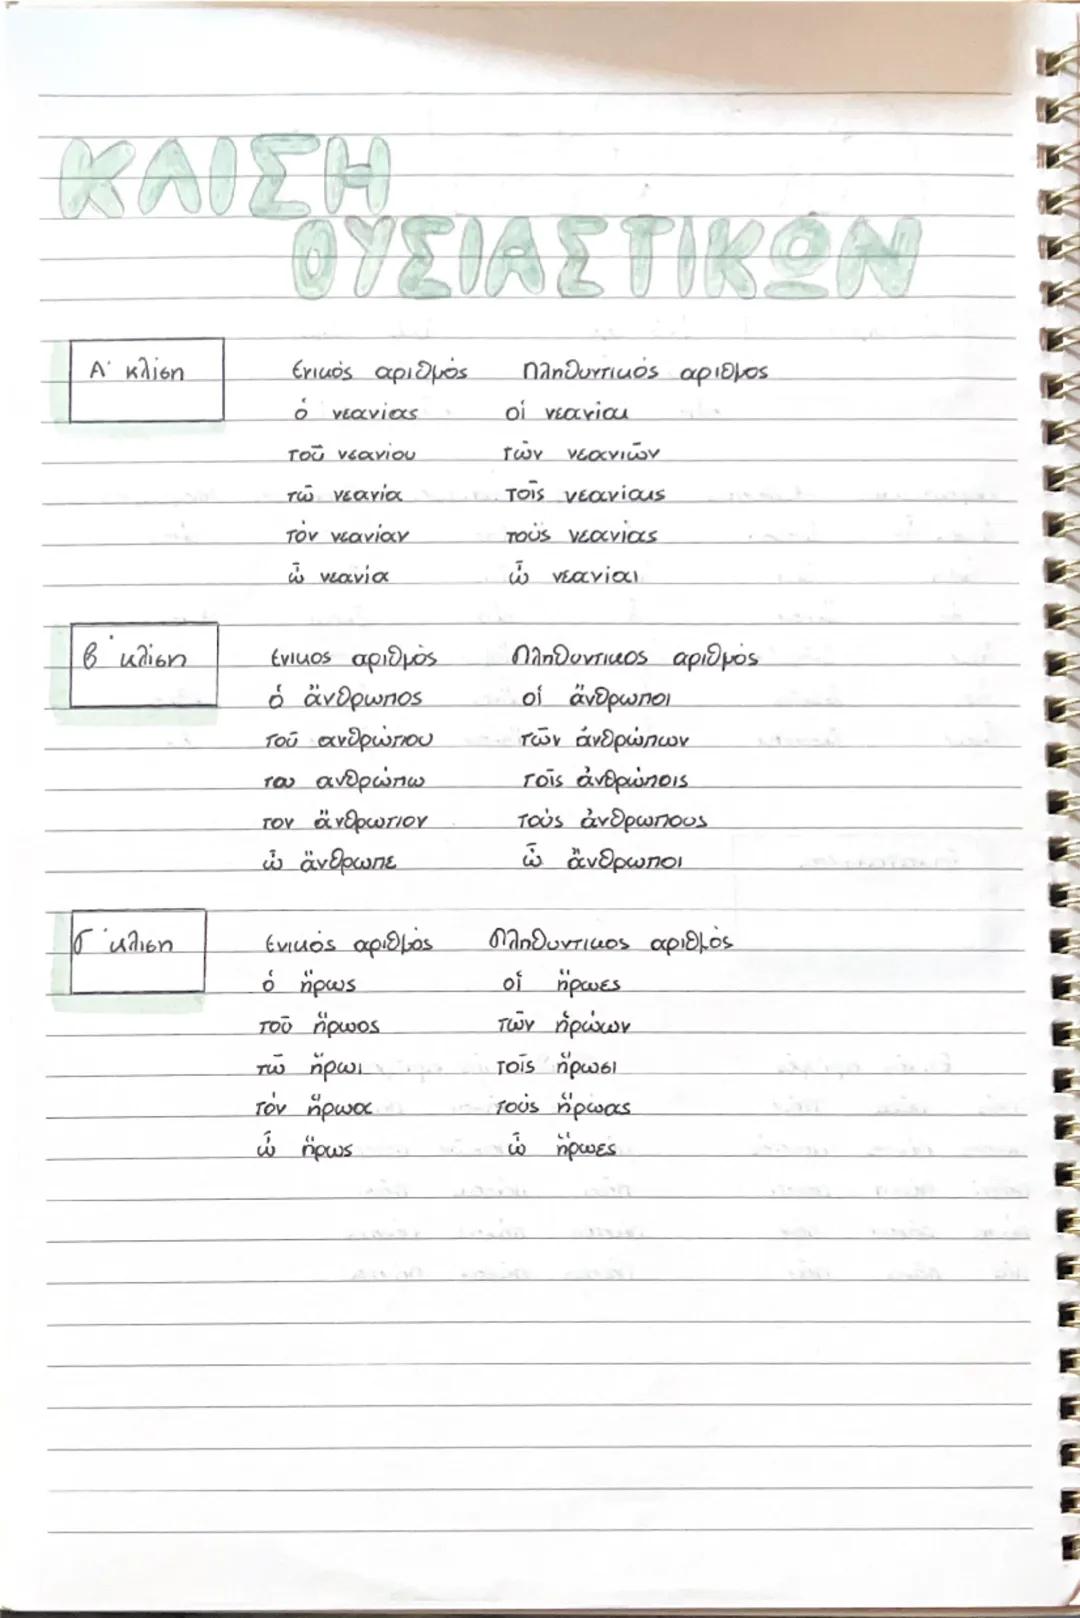 ΚΛΙΣΗ
ΟΥΣΙΑΣΤΙΚΩΝ
Α΄ κλίση Ενικός αριθμός Πληθυντικός αριθμος
ὁ νεανίας οἱ νεανίαι
τοῦ νεανίου τῶν νεανιῶν
τῶ νεανία τοῖς νεανίαις
τόν νεανίαν τούς νεανίας
ὦ νεανία ὦ νεανίαι
Β΄ κλίση Ενικος αριθμός Πληθυντικος αριθμός
ὁ ἄνθρωπος οἱ ἄνθρωποι
τοῦ ανθρώπου τῶν ἀνθρώπων
τω ανθρώπω τοῖς ἀνθρώποις
τον ἄνθρωπον τούς ἀνθρωπους
ὦ ἄνθρωπε ὦ ἄνθρωποι
Γ΄ κλιση Ενικός αριθμός Πληθυντικος αριθμός
ὁ ἥρως οἱ ἥρωες
τοῦ ἥρωος τῶν ἡρώων
τῶ ἥρωι τοῖς ἥρωσι
τόν ἥρωα τούς ἥρωας
ὦ ἥρως ὦ ἥρωες